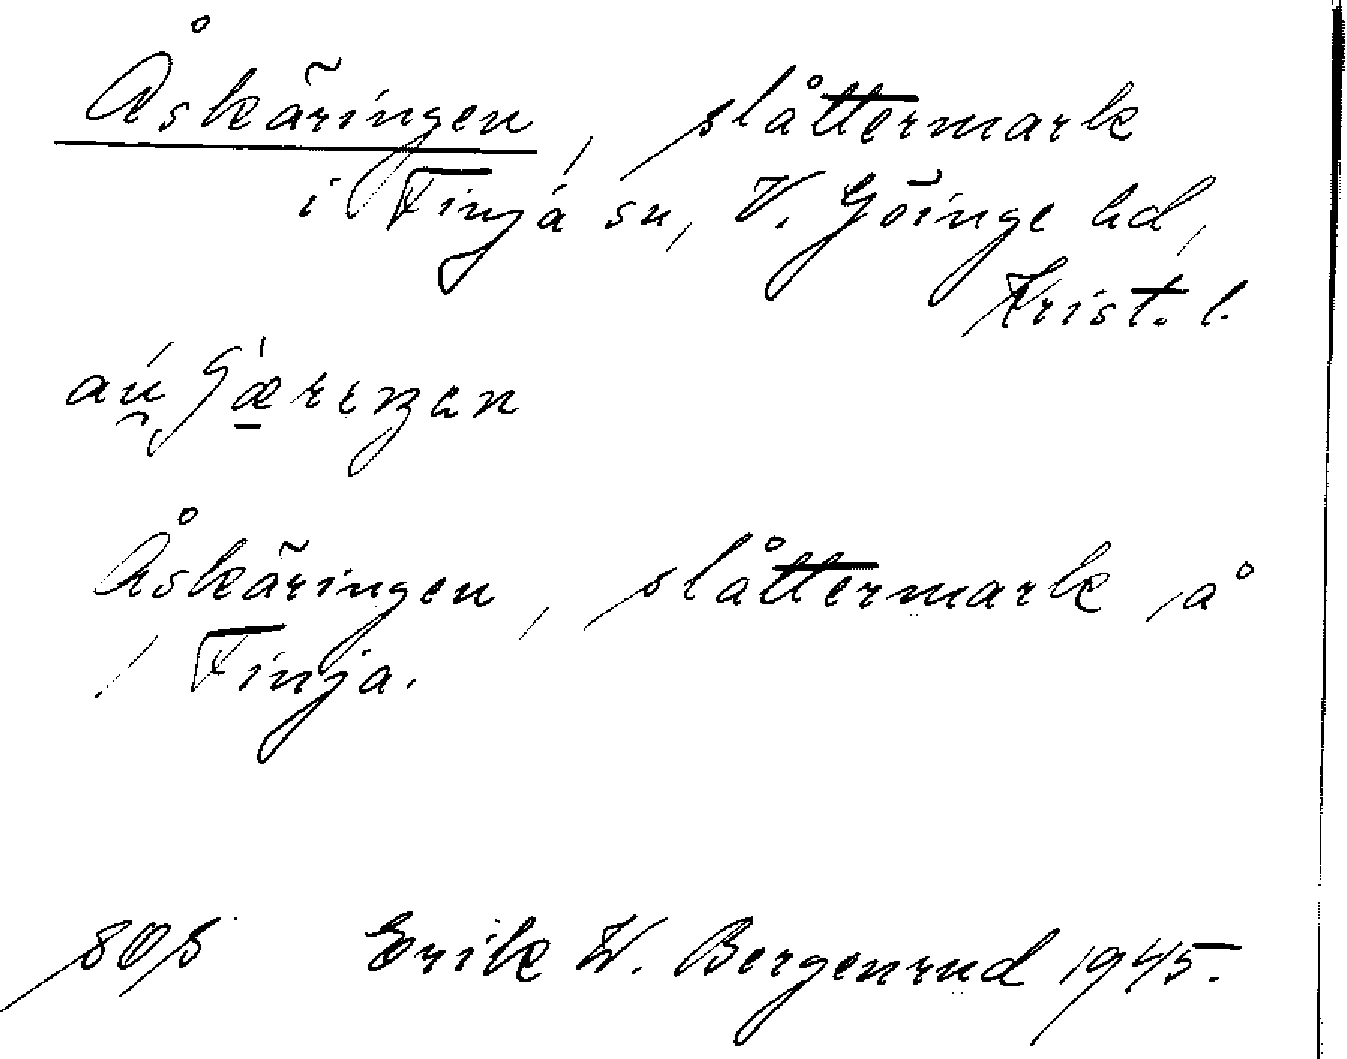 Åskäringen, slåttermark
i Finja sn, V. Göinge hd,
Krist. l.
Åskäringen, slåttermark å
Finja.
Erik W. Bergenrud 1945.